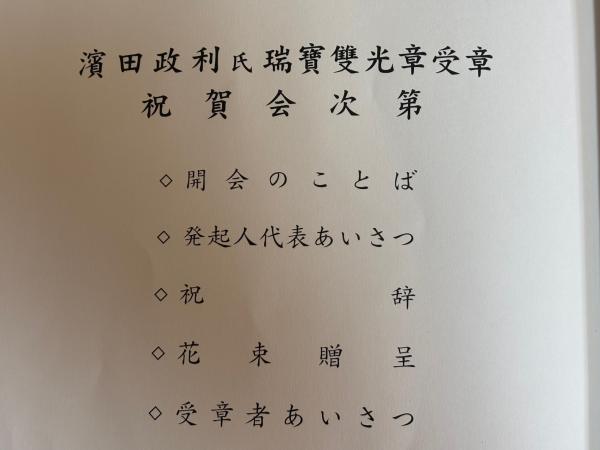 濱田政利氏瑞寶雙光章受章
祝賀会次第
◇開会のことば
◇発起人代表あいさつ
◇祝辞
◇花束贈呈
◇受章者あいさつ